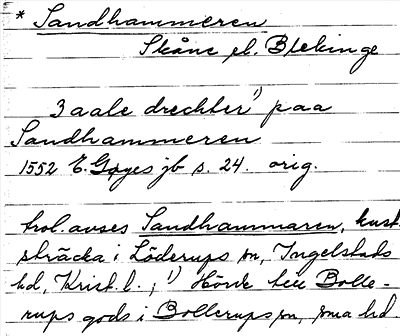 * Sandhammeren
Skåne el. Blekinge
3 aale drechter¹) paa
Sandhammeren
1552 E. Gøyes jb s. 24. orig.
trol. avses Sandhammaren, kust
sträcka i Löderups sn, Ingelstads
hd, Krist. l.; ¹) Hörde till Bolle-
rups gods i Bollerups sn, sma hd.